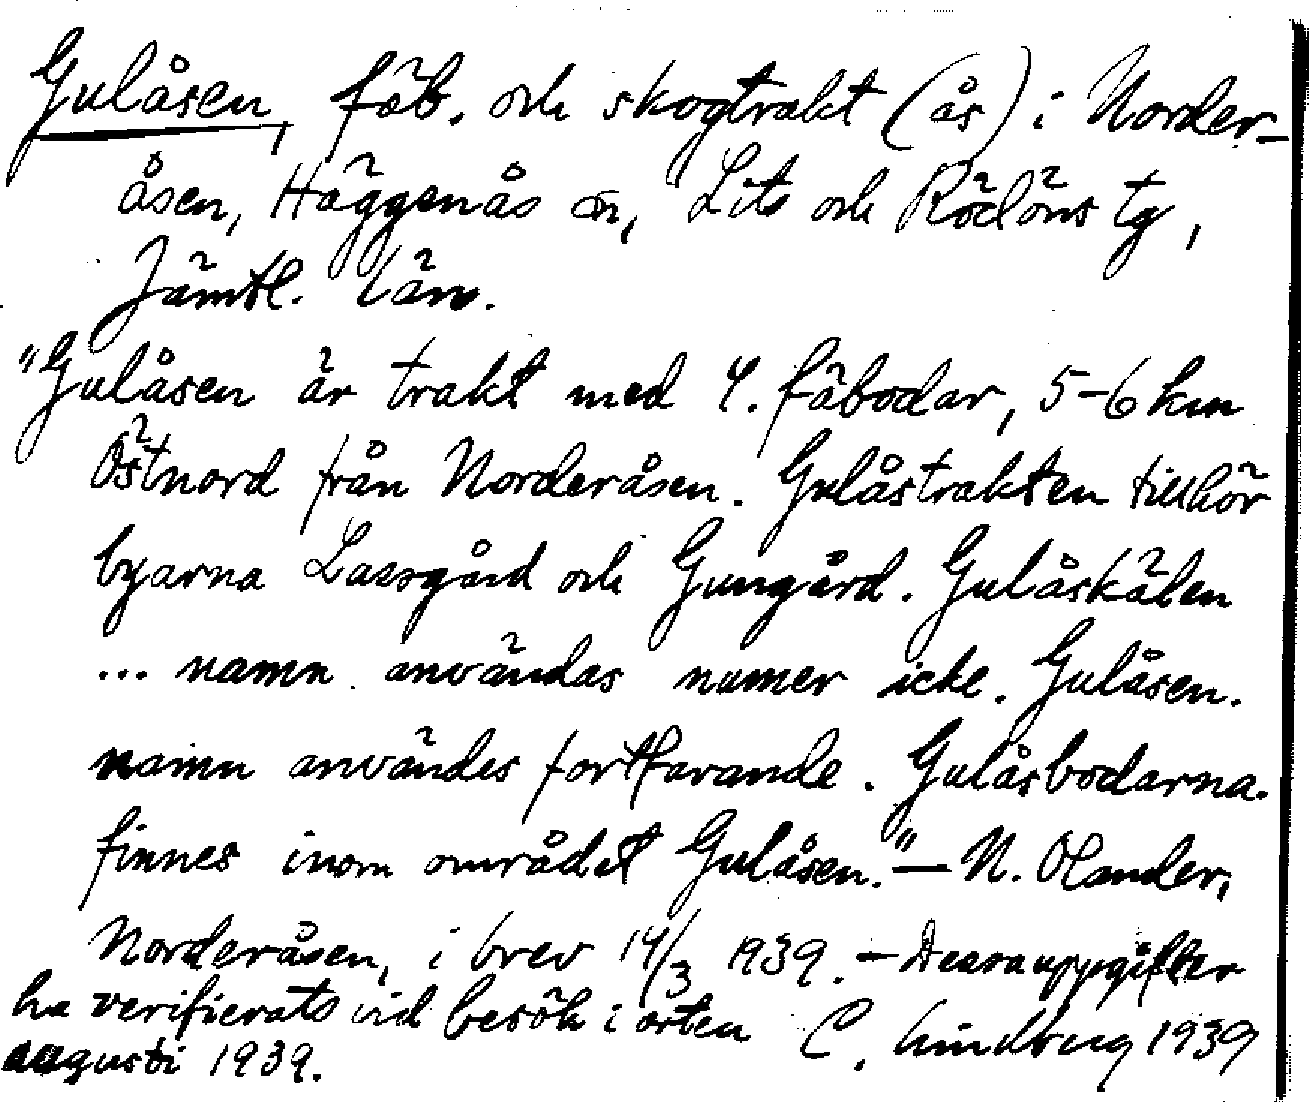 Gulåsen, fäb. och skogtrakt (ås) i Norder-
åsen, Häggenås sn, Lits och Rödöns tg,
Jämtl. län.
"Gulåsen är trakt med 4. fäbodar, 5-6 km
Östnord från Norderåsen. Gulåstrakten tillhör
byarna Lassgård och Gungård. Gulåskälen
... namn användas numer icke. Gulåsen.
namn användes fortfarande. Gulåsbodarna.
finnes inom området Gulåsen." — N. Olander,
Norderåsen, i brev 14/3 1939. — Dessa uppgifter
ha verifierats vid besök i orten
augusti 1939. C. Lindberg 1939